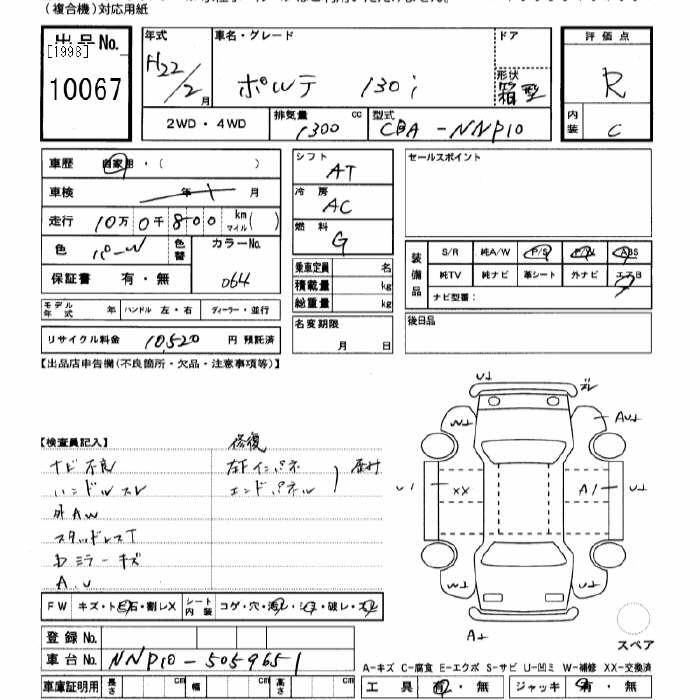 (複合機)対応用紙
出品No.
[1998]
10067
年式 車名・グレード ドア
H22/2月 ポルテ 130i 形状 箱型
2WD・4WD 排気量 cc 1300 型式 CBA-NNP10
評価点
R
内装 C
車歴 自家用・( )
車検 年 月
走行 10万0千800 km マイル( )
色 パール 色替 カラーNo. 064
保証書 有・無
モデル年式 年 ハンドル 左・右 ディーラー・並行
リサイクル料金 10520 円 預託済
シフト AT
冷房 AC
燃料 G
乗車定員 名
積載量 kg
総重量 kg
名変期限 月 日
セールスポイント
装備品 S/R 純A/W P/S P/W ABS
純TV 純ナビ 革シート 外ナビ エアB
ナビ型番:
後日品
【出品店申告欄(不良箇所・欠品・注意事項等)】
【検査員記入】 修復
ナビ不良 左Fインパネ
ハンドルスレ エンドパネル
外AW
スタッドレスT
ミラーキズ
A.U
U
ズレ
AU
W
W
U
XX
A1
U
W
U
A
FW キズ・トビ石・割レX シート内装 コゲ・穴・汚レ・シミ・破レ・スレ
登録No.
車台No. NNP10-5059651
車庫証明用 長さ cm 幅 cm 高さ cm
スペア
A-キズ C-腐食 E-エクボ S-サビ U-凹ミ W-補修 XX-交換済
工具 有・無 ジャッキ 有・無